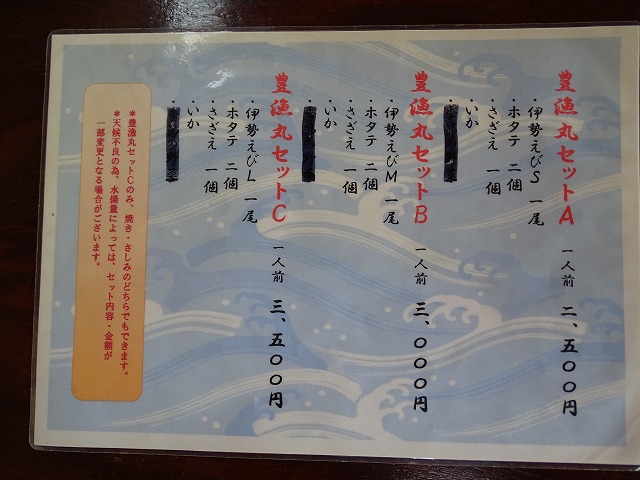 豊漁丸セットA 一人前 二、五〇〇円
・伊勢えびS 一尾
・ホタテ 二個
・さざえ 一個
・いか
豊漁丸セットB 一人前 三、〇〇〇円
・伊勢えびM 一尾
・ホタテ 二個
・さざえ 一個
・いか
豊漁丸セットC 一人前 三、五〇〇円
・伊勢えびL 一尾
・ホタテ 二個
・さざえ 一個
・いか
＊豊漁丸セットCのみ、焼き・さしみのどちらでもできます。
＊天候不良の為、水揚量によっては、セット内容・金額が
一部変更となる場合がございます。